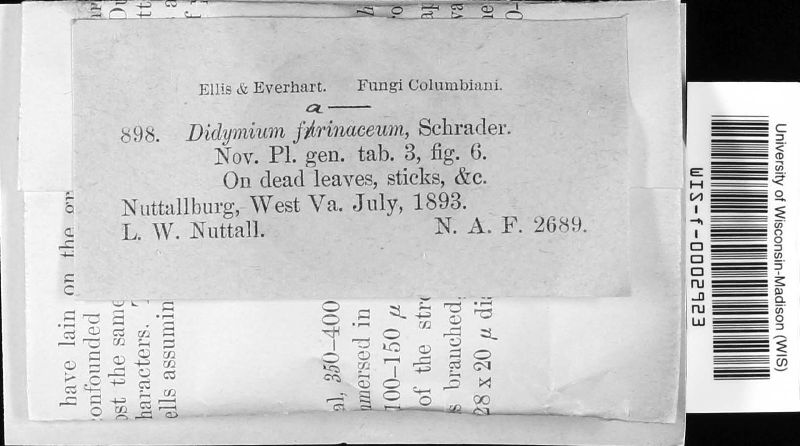 Ellis & Everhart. Fungi Columbiani.
a —
898. Didymium farinaceum, Schrader.
Nov. Pl. gen. tab. 3, fig. 6.
On dead leaves, sticks, &c.
Nuttallburg, West Va. July, 1893.
L. W. Nuttall. N. A. F. 2689.
University of Wisconsin-Madison (WIS)
WIS-f-0002623
have lain on the
onfounded
ost the same
haracters.
ells assumin
al, 350-400
mmersed in
100-150 μ
of the
s branched,
28 x 20 μ